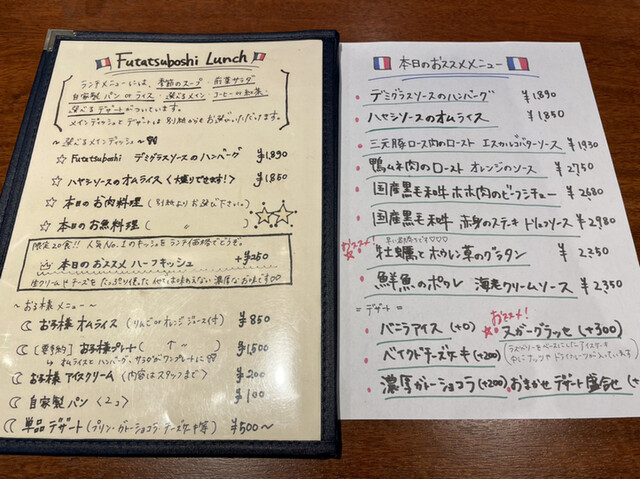 Futatsuboshi Lunch
ランチメニューには、季節のスープ・前菜サラダ
自家製 パン or ライス・選べるメイン・コーヒー or 紅茶・
選べるデザートがついています。
メインディッシュとデザートは別紙からお選びいただけます。
～選べるメインディッシュ～
☆ Futatsuboshi デミグラスソースのハンバーグ ¥1,890
☆ ハヤシソースのオムライス〈大盛りできます!〉 ¥1,850
☆ 本日のお肉料理 (別紙よりお選び下さい。)
☆ 本日のお魚料理 ( 〃 )
限定20食!! 人気No.1のキッシュをランチ価格でどうぞ。
本日のおススメ ハーフキッシュ +¥250
生クリームやチーズをたっぷり使った
濃厚なお味です
～お子様メニュー～
お子様オムライス (りんごorオレンジジュース付) ¥850
[要予約] お子様プレート ( 〃 ) ¥1,500
↳ オムライスとハンバーグ、サラダがワンプレートに
お子様アイスクリーム (内容はスタッフまで) ¥200
自家製パン〈2コ〉 ¥100
単品デザート(プリン・ガトーショコラ・チーズケーキ等) ¥500～
本日のおススメメニュー
・デミグラスソースのハンバーグ ¥1,890
・ハヤシソースのオムライス ¥1,850
・三元豚ロース肉のロースト エスカルゴバターソース ¥1930
・鴨ムネ肉のロースト オレンジのソース ¥2750
・国産黒毛和牛 ホホ肉のビーフシチュー ¥2680
・国産黒毛和牛 赤身のステーキ トリュフソース ¥2980
おススメ!
・牡蠣とホウレン草のグラタン ¥2,350
・鮮魚のポワレ 海老クリームソース ¥2,350
= デザート =
・バニラアイス (+0)
おススメ!
★ヌガーグラッセ (+300)
・ベイクドチーズケーキ (+200)
・濃厚ガトーショコラ (+200)
・おまかせデザート盛合せ (+